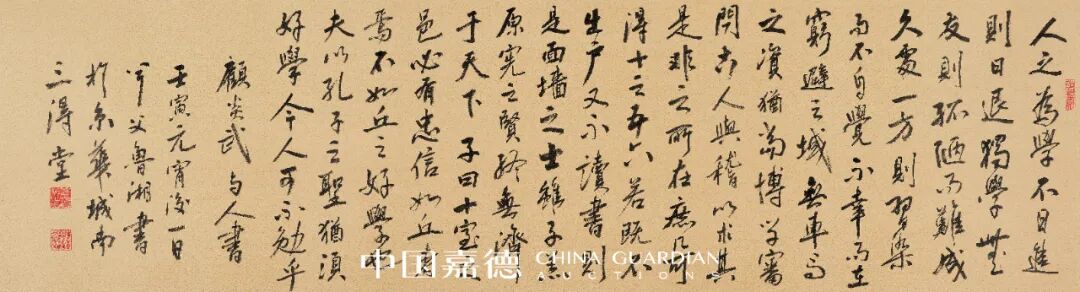 人之為學不日進
則日退獨學無
友則孤陋而難成
久處一方則習染
而不自覺不幸而在
窮避之域無車馬
之資猶當博學審
問古人與稽以求其
是非之所在庶几可
得十之五六若既不
出户又不讀書則
是面墻之士雖子羔
原憲之賢終無濟
于天下子曰十室之
邑必有忠信如丘者
焉不如丘之好學也
夫以孔子之聖猶須
好學今人可不勉乎
顧炎武 与人書
壬寅元宵後一日
父魯湘書
於京華城南
三得堂
中国嘉德 CHINA GUARDIAN
AUCTIONS